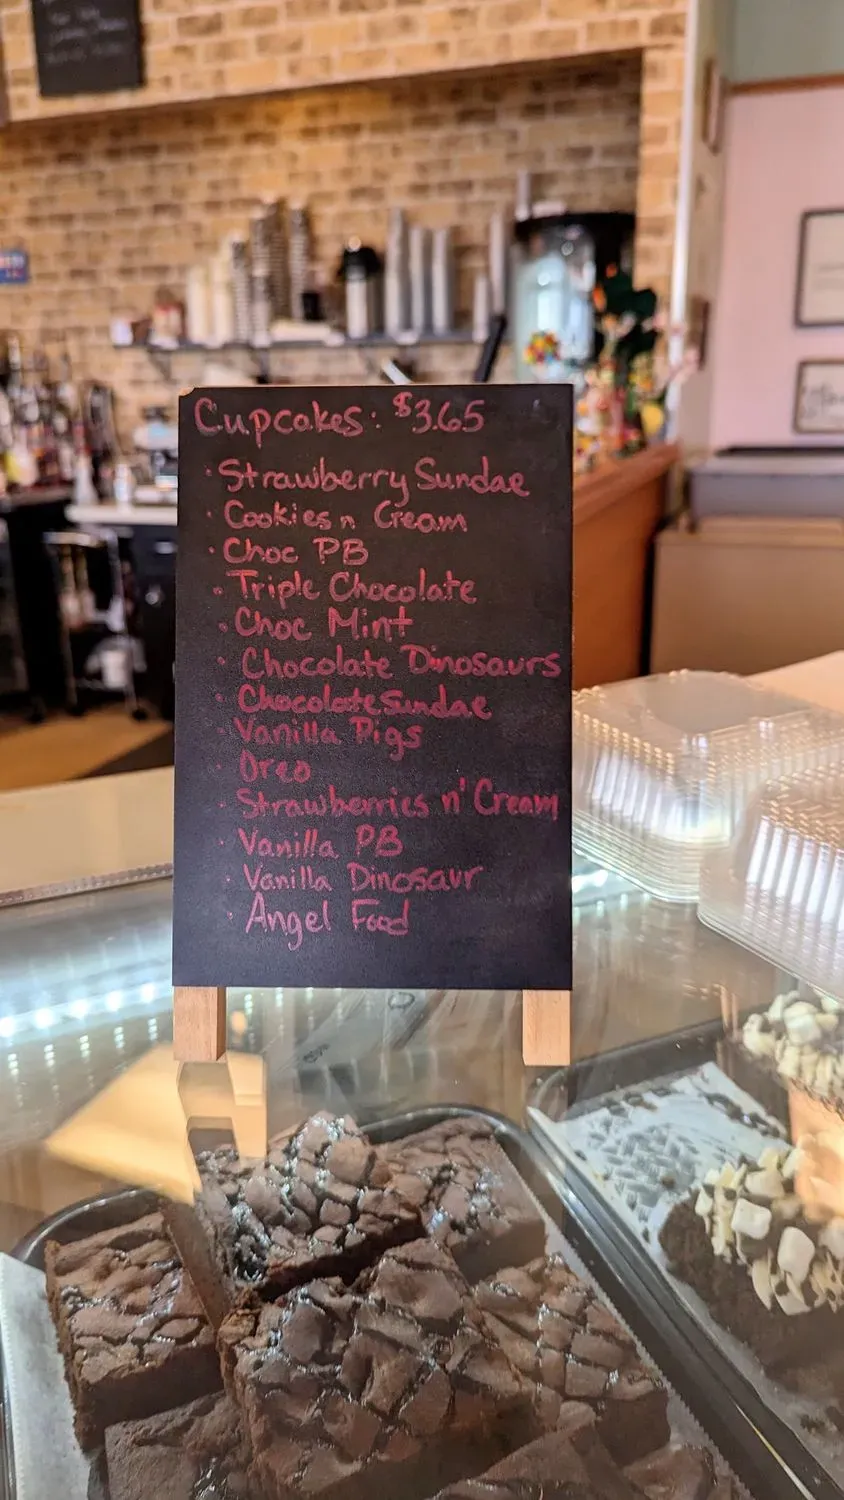 Cupcakes: $3.65
· Strawberry Sundae
· Cookies n Cream
· Choc PB
· Triple Chocolate
· Choc Mint
· Chocolate Dinosaurs
· Chocolate Sundae
· Vanilla Pigs
· Oreo
· Strawberries n' Cream
· Vanilla PB
· Vanilla Dinosaur
· Angel Food